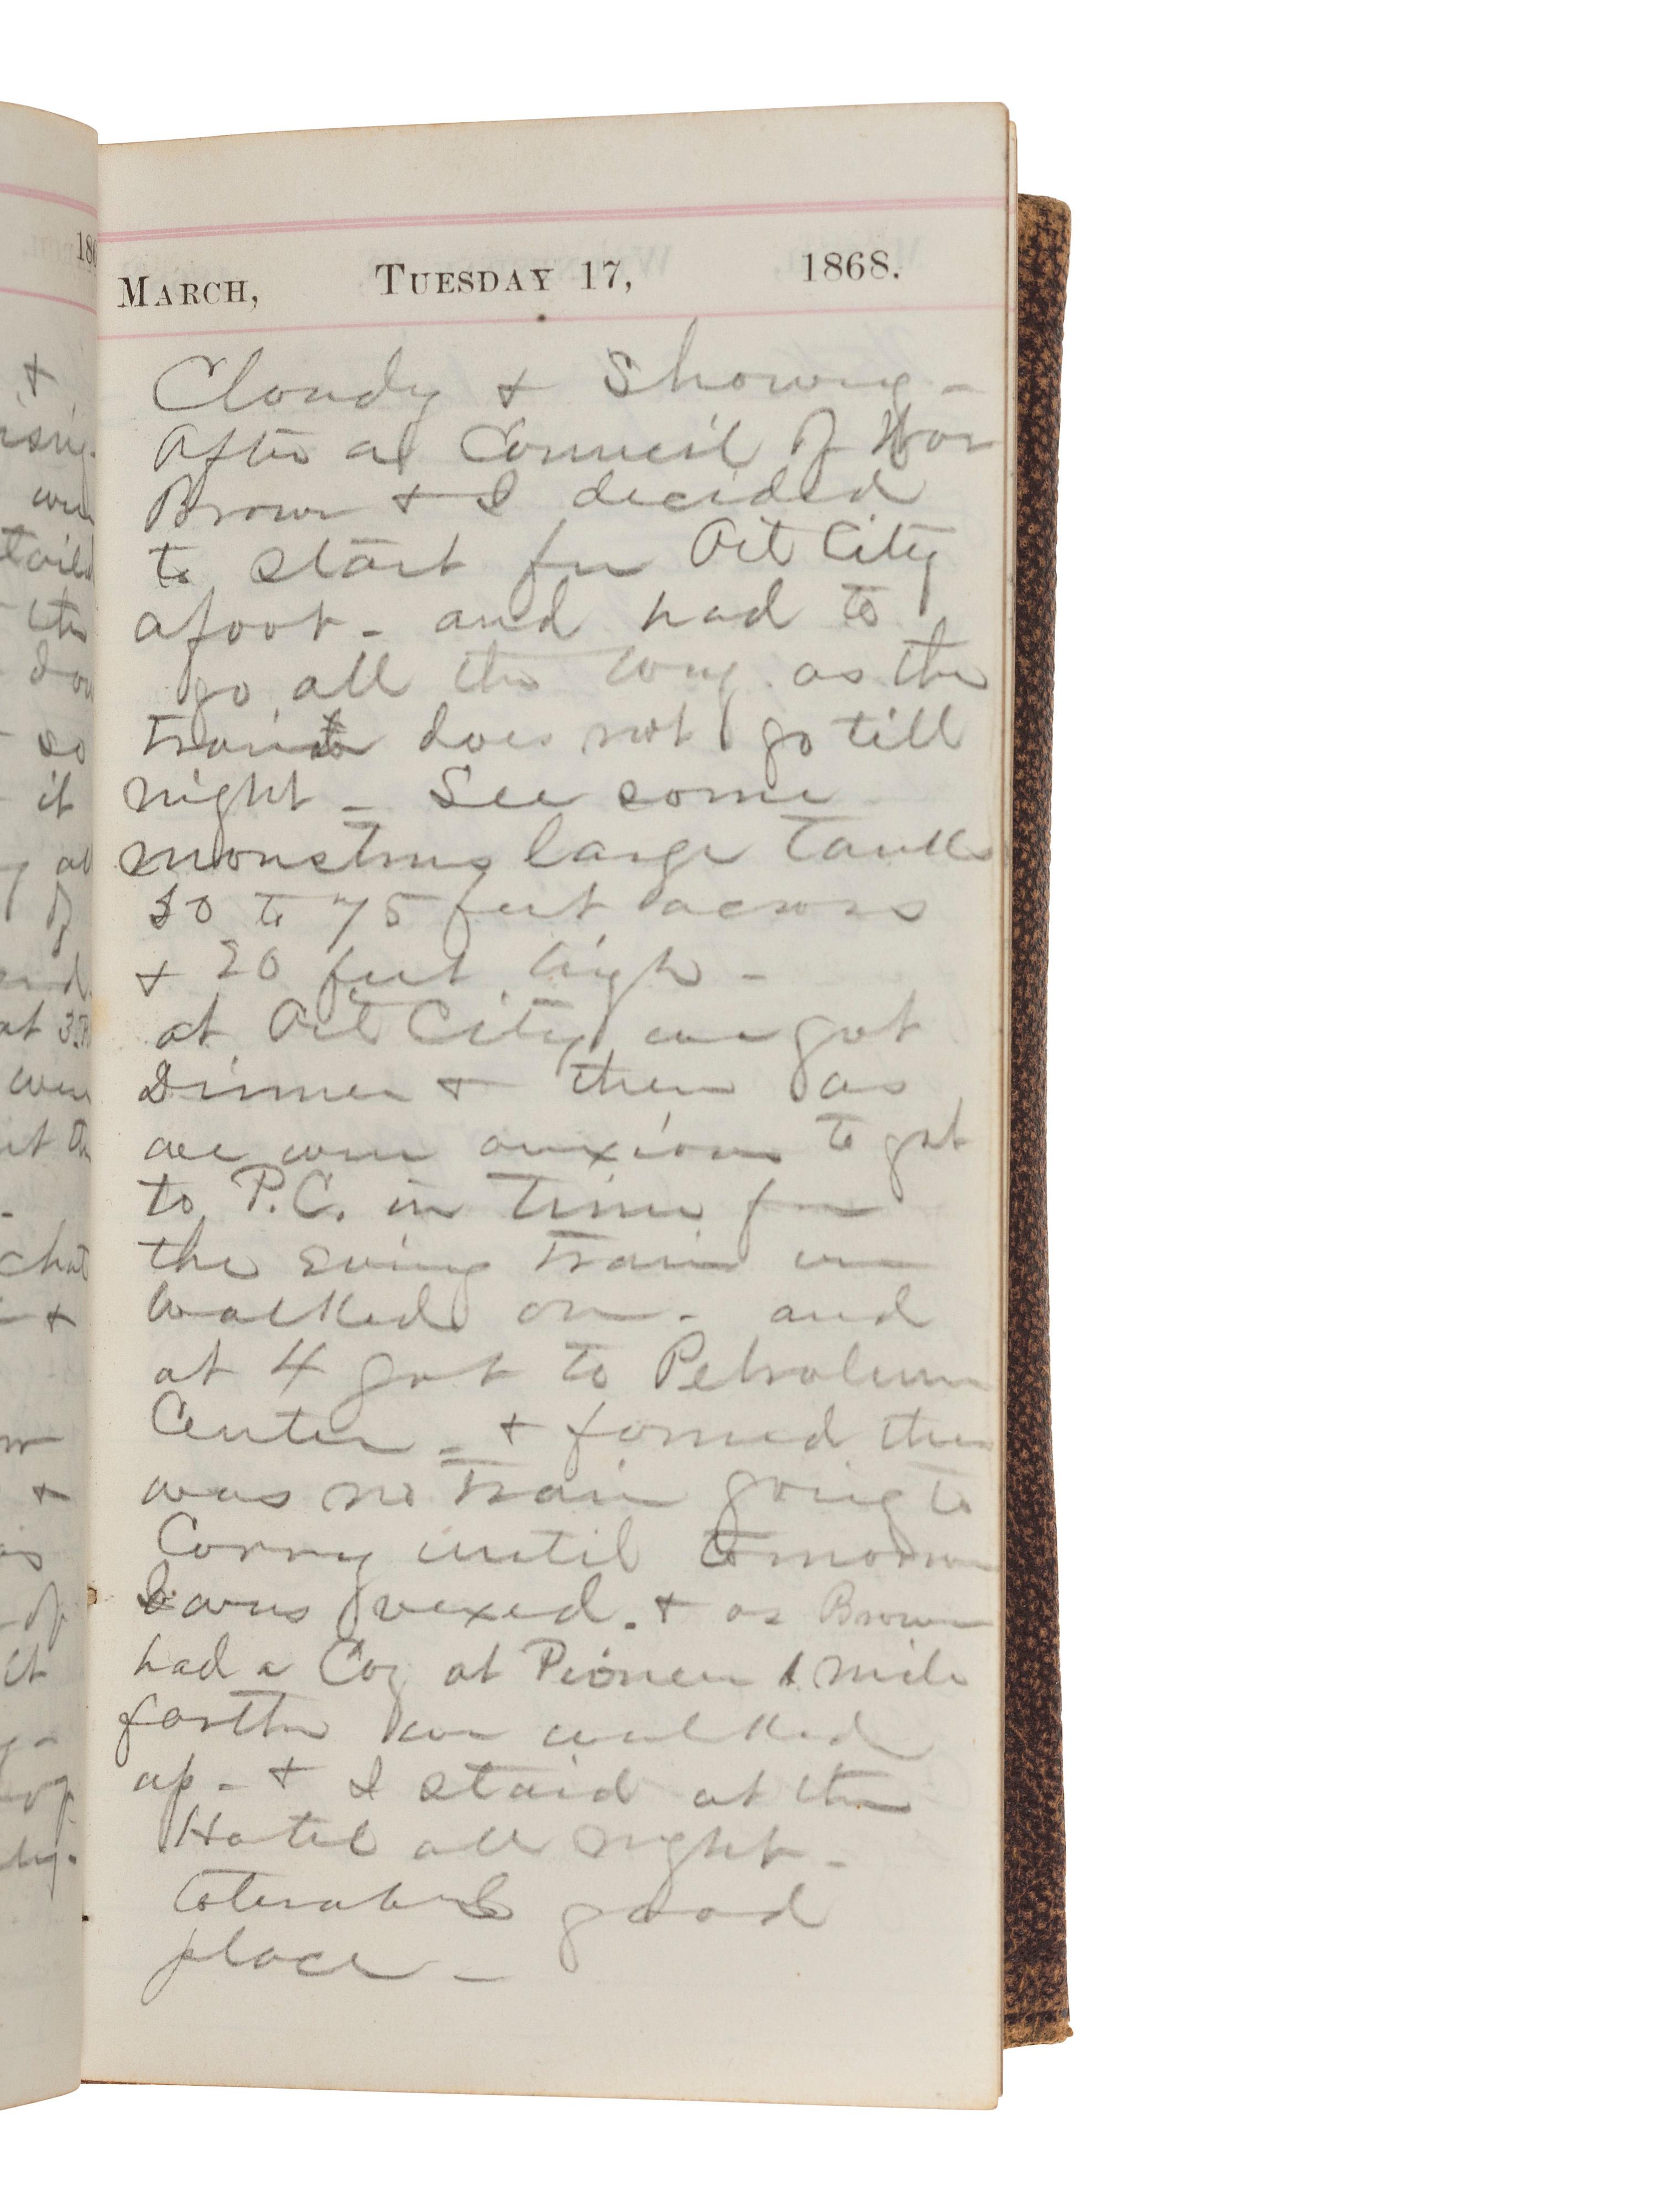 MARCH, TUESDAY 17, 1868.
Cloudy & Showing -
After a Council of War
Brown & I decided
to start for Oil City
afoot - and had to
go all the way as the
train does not go till
night - See some
monstrus large Tanks
50 to 75 feet across
& 20 feet high -
at Oil City we got
Dinner & then as
we were anxious to get
to P.C. in time for
the eveing train we
walked on - and
at 4 got to Petroleum
Center - & found there
was no train going to
Corry until tomorrow
I was vexed. & as Brown
had a Coz at Pioneer 1 mile
farther we walked
up - & I staid at the
Hotel all night -
tolerable good
place -